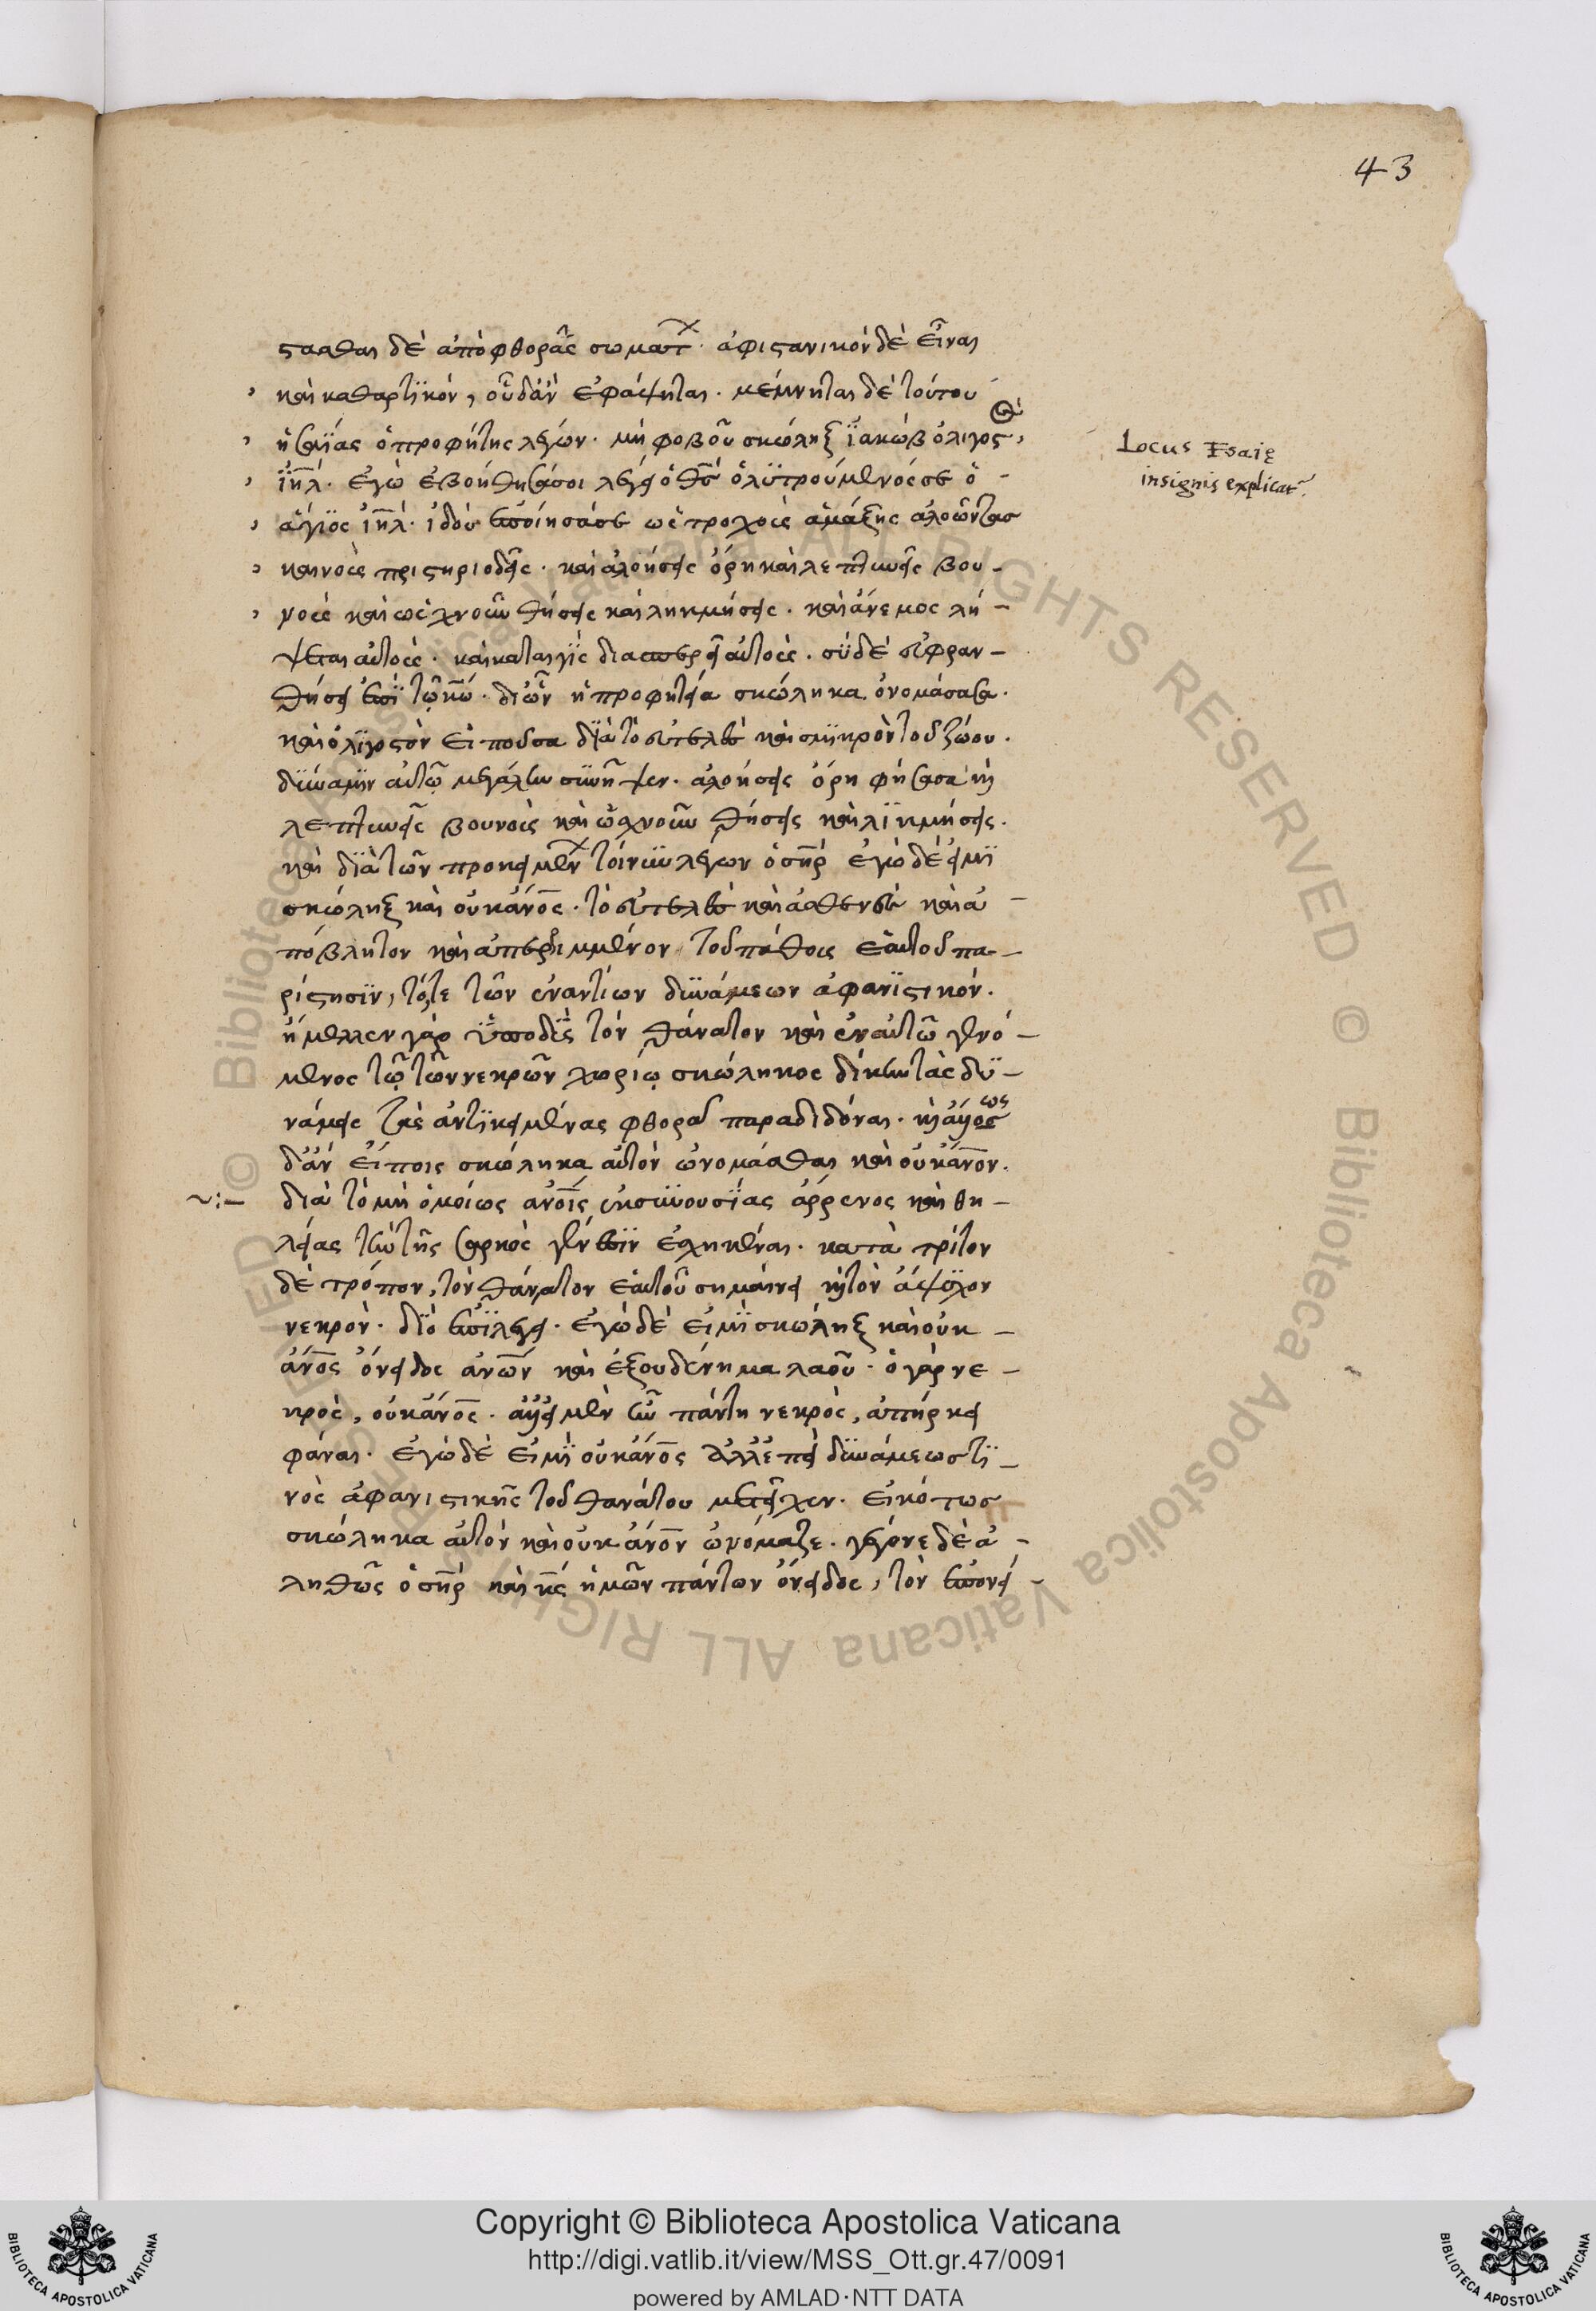 43
στασθαι δὲ ἀπὸ φθορᾶς σωματ͂χ· ἀφιστανικὸν δὲ εἶναι
καὶ καθαρτϊκὸν, οὗ δ' ἂν ἐφάψηται. μέμνηται δὲ τούτου
ἡσαΐας ὁ προφήτης λέγων· μὴ φοβοῦ σκώληξ ϊακὼβ ὀλιγοστὲ
ϊη̅λ̅· ἐγὼ ἐβοήθησά σοι λέγει ὁ θς̅ ὁ λϋτρούμενός σε ὁ
ἅγϊος ιη̅λ̅· ἰδοὺ ἐποίησά σε ὡς τροχοὺς ἁμάξης ἀλοῶντας
καινοὺς πριστηριοδεῖς. καὶ ἀλοήσεις ὄρη καὶ λεπτυνεῖς βου-
νοὺς καὶ ὡς χνοῦν θήσεις καὶ λικμήσεις. καὶ ἄνεμος λή-
ψεται αὐτοὺς· καὶ καταιγὶς διασπερεῖ αὐτοὺς. σὺ δὲ εὐφραν-
θήσῃ ἐπὶ τῷ κω̅. δι' ὧν ἡ προφητεία σκώληκα ὀνομάσασα.
καὶ ὀλϊγοστὸν εἰποῦσα δϊὰ τὸ εὐτελὲς καὶ σμϊκρὸν τοῦ ζώου.
δύναμϊν αὐτῷ μεγάλην συνῆψεν. ἀλοήσεις ὄρη φήσασα καὶ
λεπτυνεῖς βουνοὺς καὶ ὡς χνοῦν θήσεις καὶ λϊκμήσεις.
καὶ δϊὰ τῶν προκειμένων τοίνυν λέγων ὁ ση̅ρ̅ ἐγὼ δέ εἰμϊ
σκώληξ καὶ οὐκ ἄνο̅ς̅. τὸ εὐτελὲς καὶ ἀσθενὲς καὶ ἀ-
πόβλητον καὶ ἀπερριμμένον τοῦ πάθους ἑαυτοῦ πα-
ρίστησϊν, τό τε τῶν ἐναντίων δυνάμεων ἀφανϊστικόν.
ἤμελλεν γὰρ ὑποδὺς τὸν θάνατον καὶ ἐν αὐτῷ γενό-
μενος τῷ τῶν νεκρῶν χωρίῳ σκώληκος δίκην τὰς δυ-
νάμεις τὰς ἀντϊκειμένας φθορᾷ παραδιδόναι. καὶ ἄλλως
δ' ἂν εἴποις σκώληκα αὐτὸν ὠνομάσθαι καὶ οὐκ ἄνον̅.
διὰ τὸ μὴ ὁμοίως ἀνο̅ι̅ς ἐκ συνουσΐας ἄρρενος καὶ θη-
λείας τὴν τῆς σαρκὸς γένεσϊν ἐσχηκέναι. κατὰ τρίτον
δὲ τρόπον, τὸν θάνατον ἑαυτοῦ σημαίνει καὶ τὸν ἄψϋχον
νεκρὸν. δϊὸ ἐπϊλέγει. ἐγὼ δὲ εἰμὶ σκώληξ καὶ οὐκ
ἄνο̅ς̅ ὄνειδος ἀνω̅ν̅ καὶ ἐξουδένημα λαοῦ. ὁ γὰρ νε-
κρὸς, οὐκ ἄνο̅ς̅. ἀλλ' εἰ μὲν ἦν πάντη νεκρὸς, ἀπήρκει
φάναι. ἐγὼ δὲ εἰμϊ οὐκ ἄνο̅ς̅ ἀλλ' ἐπεὶ δυνάμεως τϊ-
νὸς ἀφανιστικῆς τοῦ θανάτου μετεῖχεν. εἰκότως
σκώληκα αὐτὸν καὶ οὐκ ἄνον̅ ὠνόμαζε. γέγονε δὲ ἀ-
ληθῶς ὁ ση̅ρ̅ καὶ κς̅ ἡμῶν πάντων ὄνειδος, τὸν ἐπονεί-
Locus Esaię
insignis explicat͂
Copyright © Biblioteca Apostolica Vaticana
http://digi.vatlib.it/view/MSS_Ott.gr.47/0091
powered by AMLAD·NTT DATA